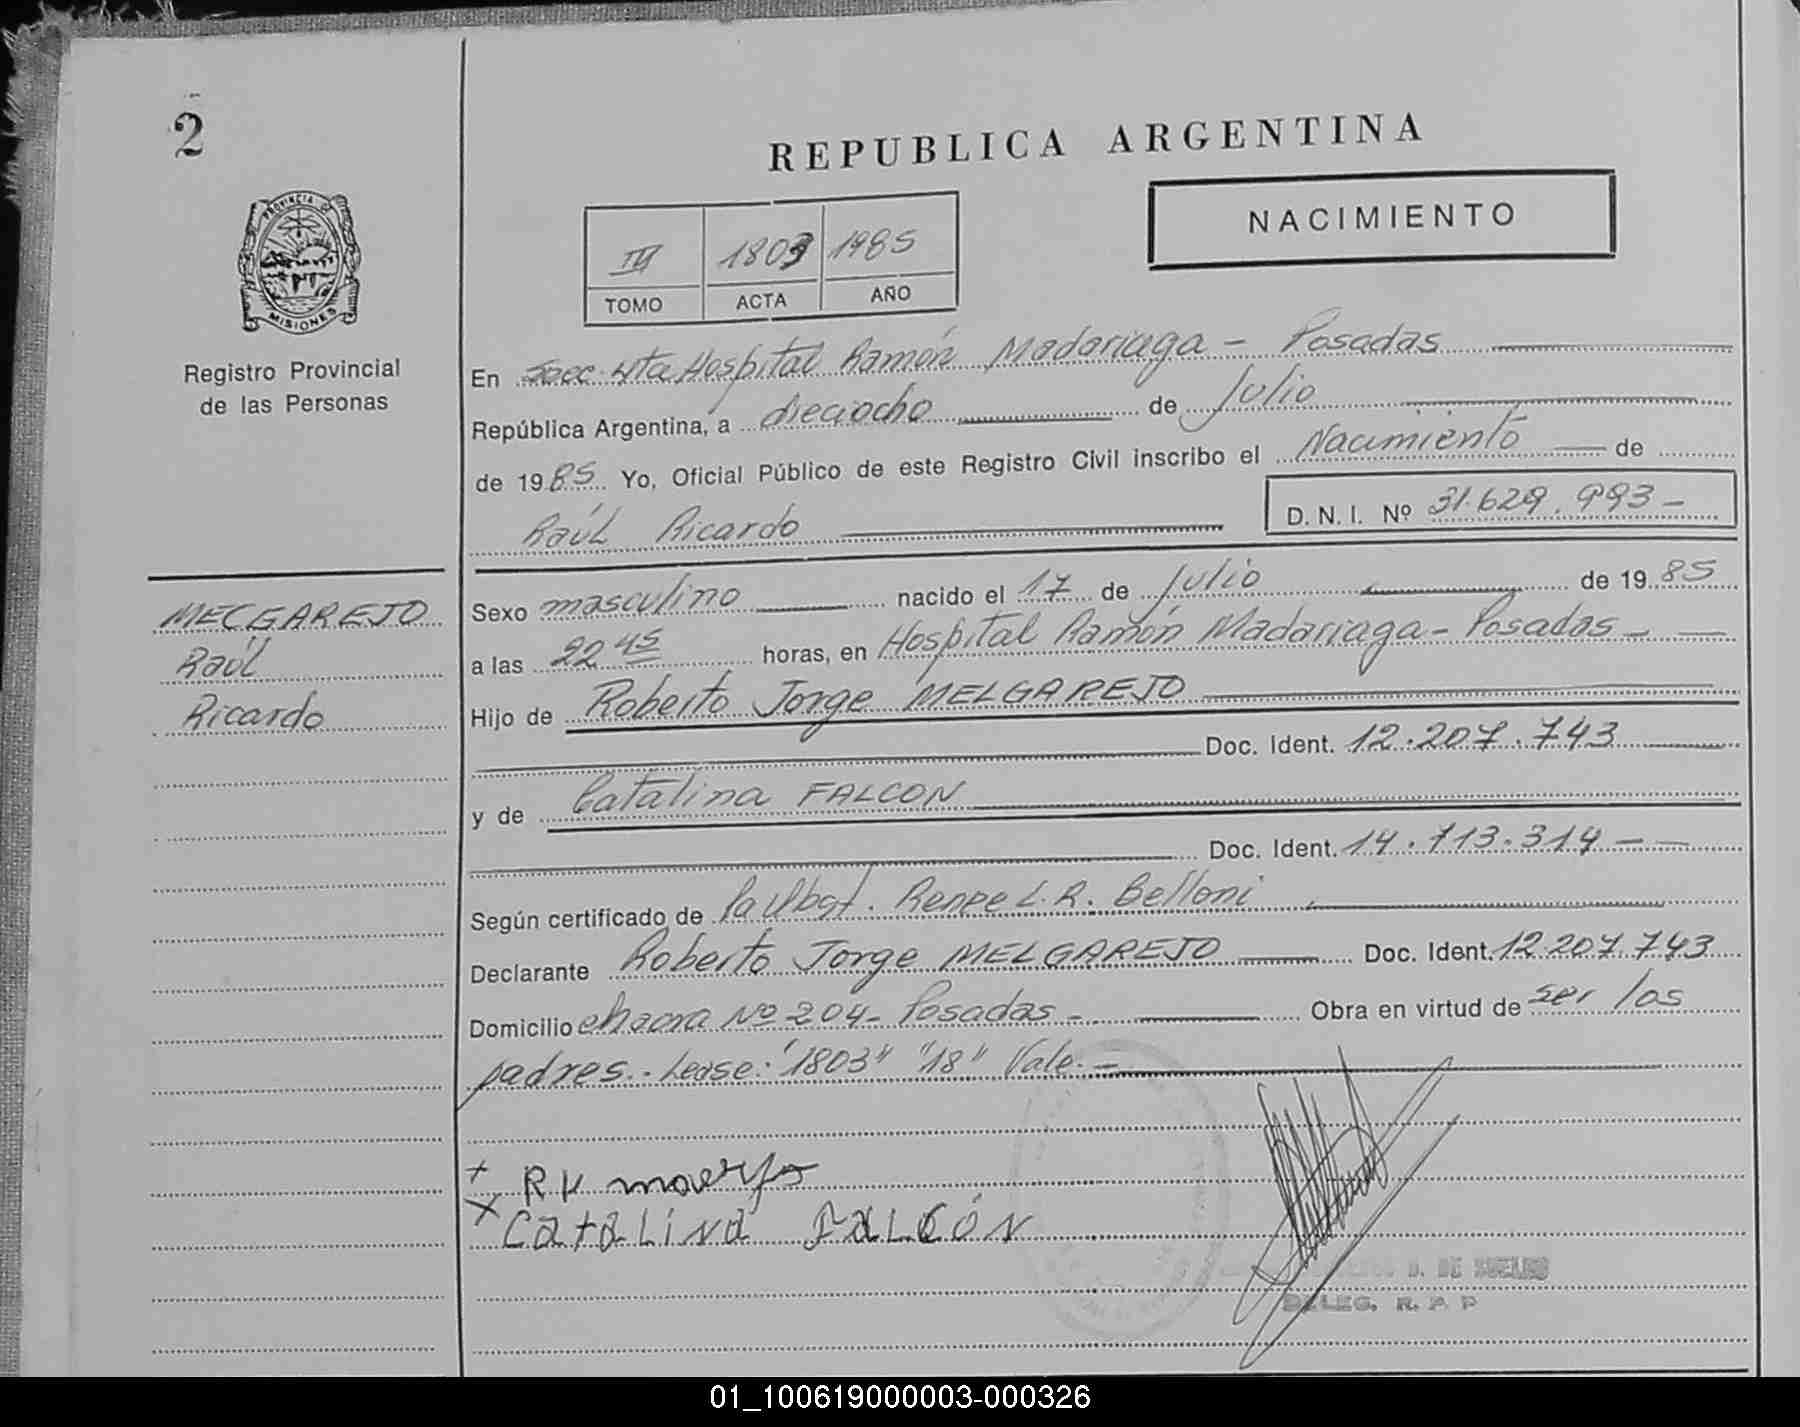 2
REPUBLICA ARGENTINA
NACIMIENTO
III 1803 1985
TOMO ACTA AÑO
PROVINCIA DE
MISIONES
Registro Provincial
de las Personas
En Secc. 4ta Hospital Ramón Madariaga - Posadas
República Argentina, a dieciocho de Julio
de 1985 Yo, Oficial Público de este Registro Civil inscribo el Nacimiento de
Raúl Ricardo D. N. I. Nº 31.629.993-
MELGAREJO
Raúl
Ricardo
Sexo masculino nacido el 17 de Julio de 1985
a las 22 45 horas, en Hospital Ramón Madariaga - Posadas -
Hijo de Roberto Jorge MELGAREJO
Doc. Ident. 12.207.743
y de Catalina FALCON
Doc. Ident. 14.713.314 -
Según certificado de la Obst. L. R. Belloni
Declarante Roberto Jorge MELGAREJO Doc. Ident. 12.207.743
Domicilio chacra Nº 204- Posadas - Obra en virtud de ser los
padres.- Lease: "1803" "18" Vale.-
+
x Catalina FALCÓN
D. DE SUELDO
DELEG. R. P. P
01_100619000003-000326